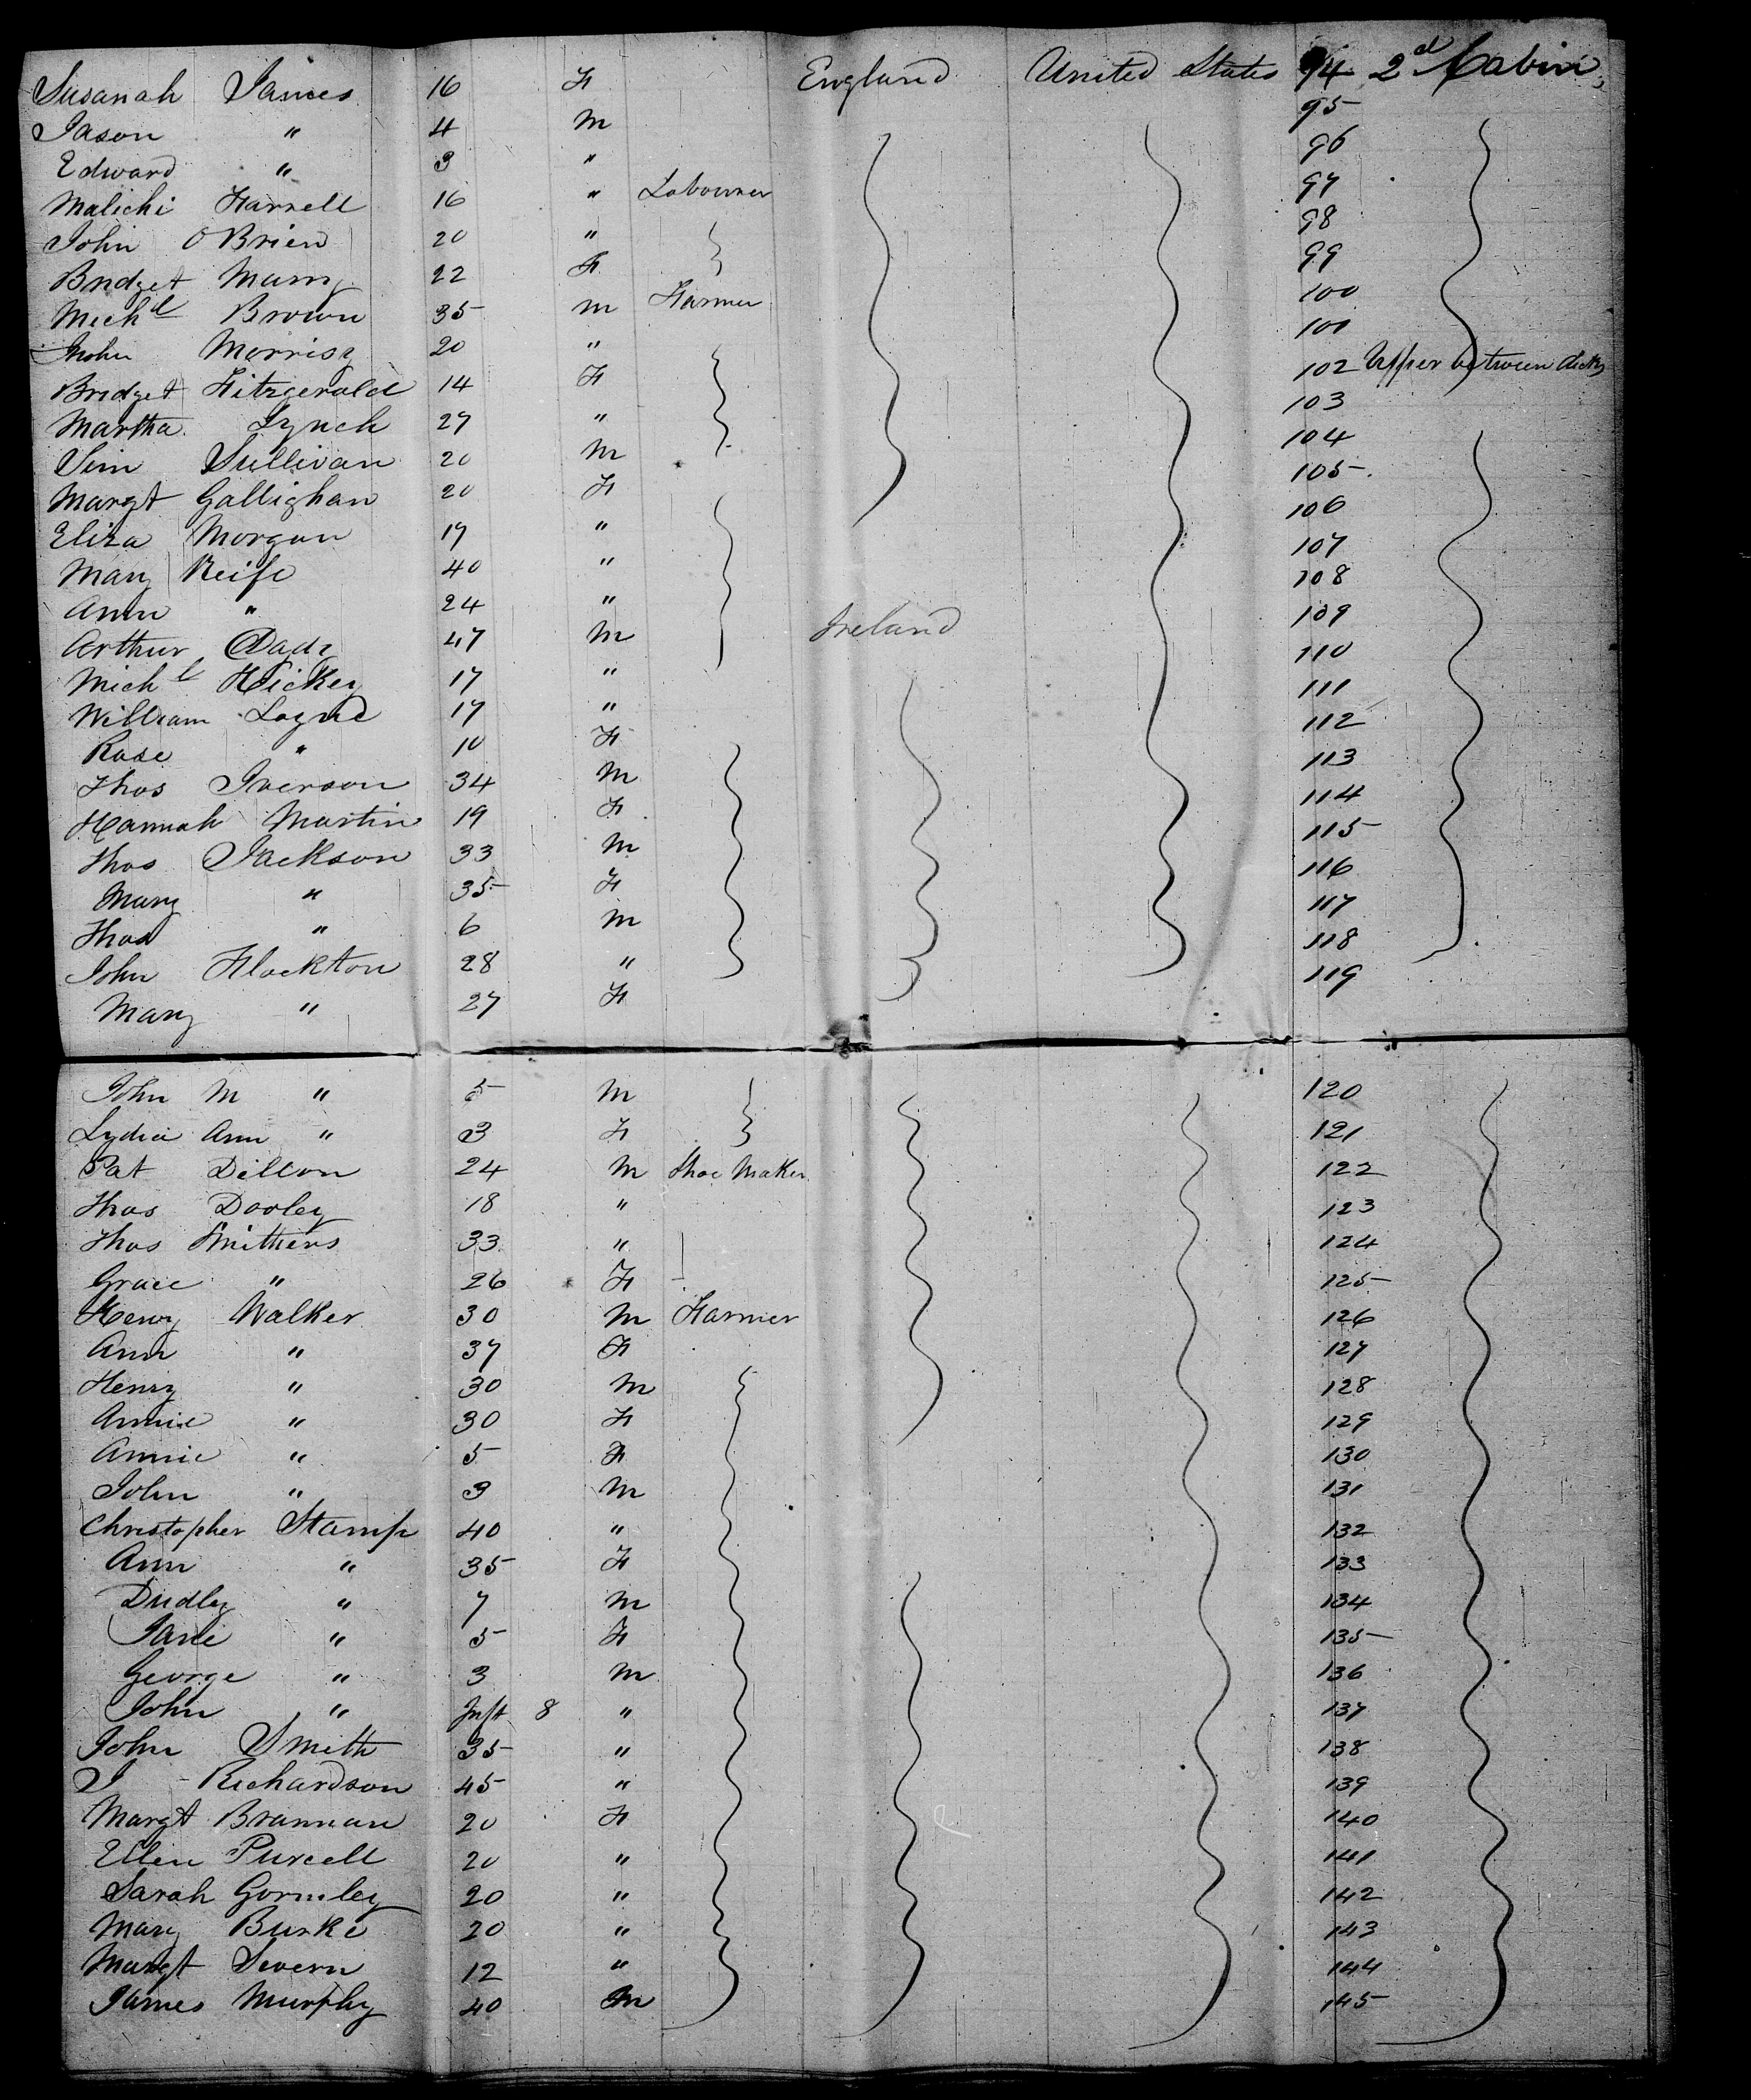 Susanah James 16 F England United States 94 2d Cabin
Jason " 4 M 95
Edward " 3 " 96
Malichi Farrell 16 " Labourer 97
John O Brien 20 " 98
Bridget 22 F 99
Michl Brown 35 M Farmer 100
John Morrisy 20 " 101
Bridget Fitzgerald 14 F 102 Upper between decks
Martha Lynch 27 " 103
Sullivan 20 M 104
Margt Gallighan 20 F 105
Eliza Morgan 17 " 106
Mary Keife 40 " 107
Ann " 24 " 108
Arthur 47 M Ireland 109
Michl Hickey 17 " 110
William Logue 17 " 111
Rose " 10 F 112
Thos Iverson 34 M 113
Hannah Martin 19 F 114
Thos Jackson 33 M 115
Mary " 35 F 116
Thos " 6 M 117
John Flockton 28 " 118
Mary " 27 F 119
John M " 5 M 120
Lydia Ann " 3 F 121
Pat Dillon 24 M Shoe Maker 122
Thos Dooley 18 " 123
Thos Smithers 33 " 124
Grace " 26 F 125
Henry Walker 30 M Farmer 126
Ann " 37 F 127
Henry " 30 M 128
Annie " 30 F 129
Annie " 5 F 130
John " 3 M 131
Christopher Stamp 40 " 132
Ann " 35 F 133
Dudly " 7 M 134
Jane " 5 F 135
George " 3 M 136
John " Inft 8 " 137
John Smith 35 " 138
J Richardson 45 " 139
Margt Brannan 20 F 140
Ellen Purcell 20 " 141
Sarah Gormley 20 " 142
Mary Burke 20 " 143
Margt Severn 12 " 144
James Murphy 40 M 145